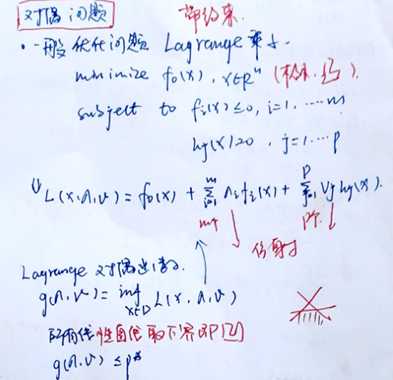 对偶问题 带约束.
· 一般优化问题 Lagrange 乘子.
minimize f₀(x), x∈Rⁿ (标准.凸).
subject to fᵢ(x)≤0, i=1, ....m
hⱼ(x)=0, j=1....p
L(x,λ,υ) = f₀(x) + Σᵢ₌₁ᵐ λᵢfᵢ(x) + Σⱼ₌₁ᵖ υⱼhⱼ(x).
m个 p个
仿射
Lagrange 对偶函数.
g(λ,υ)= inf x∈D L(x,λ,υ)
线性函数取下界即凹
g(λ,υ) ≤p*